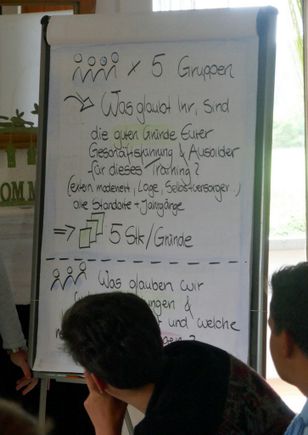 x 5 Gruppen
Was glaubt Ihr, sind
die guten Gründe Eurer
Geschäftsführung & Ausbilder
für dieses Training?
(extern moderiert, Lage, Selbstversorger,
alle Standorte + Jahrgänge
=> 5 Stk/Gründe
Was glauben wir
ungen &
und welche
?
OMM